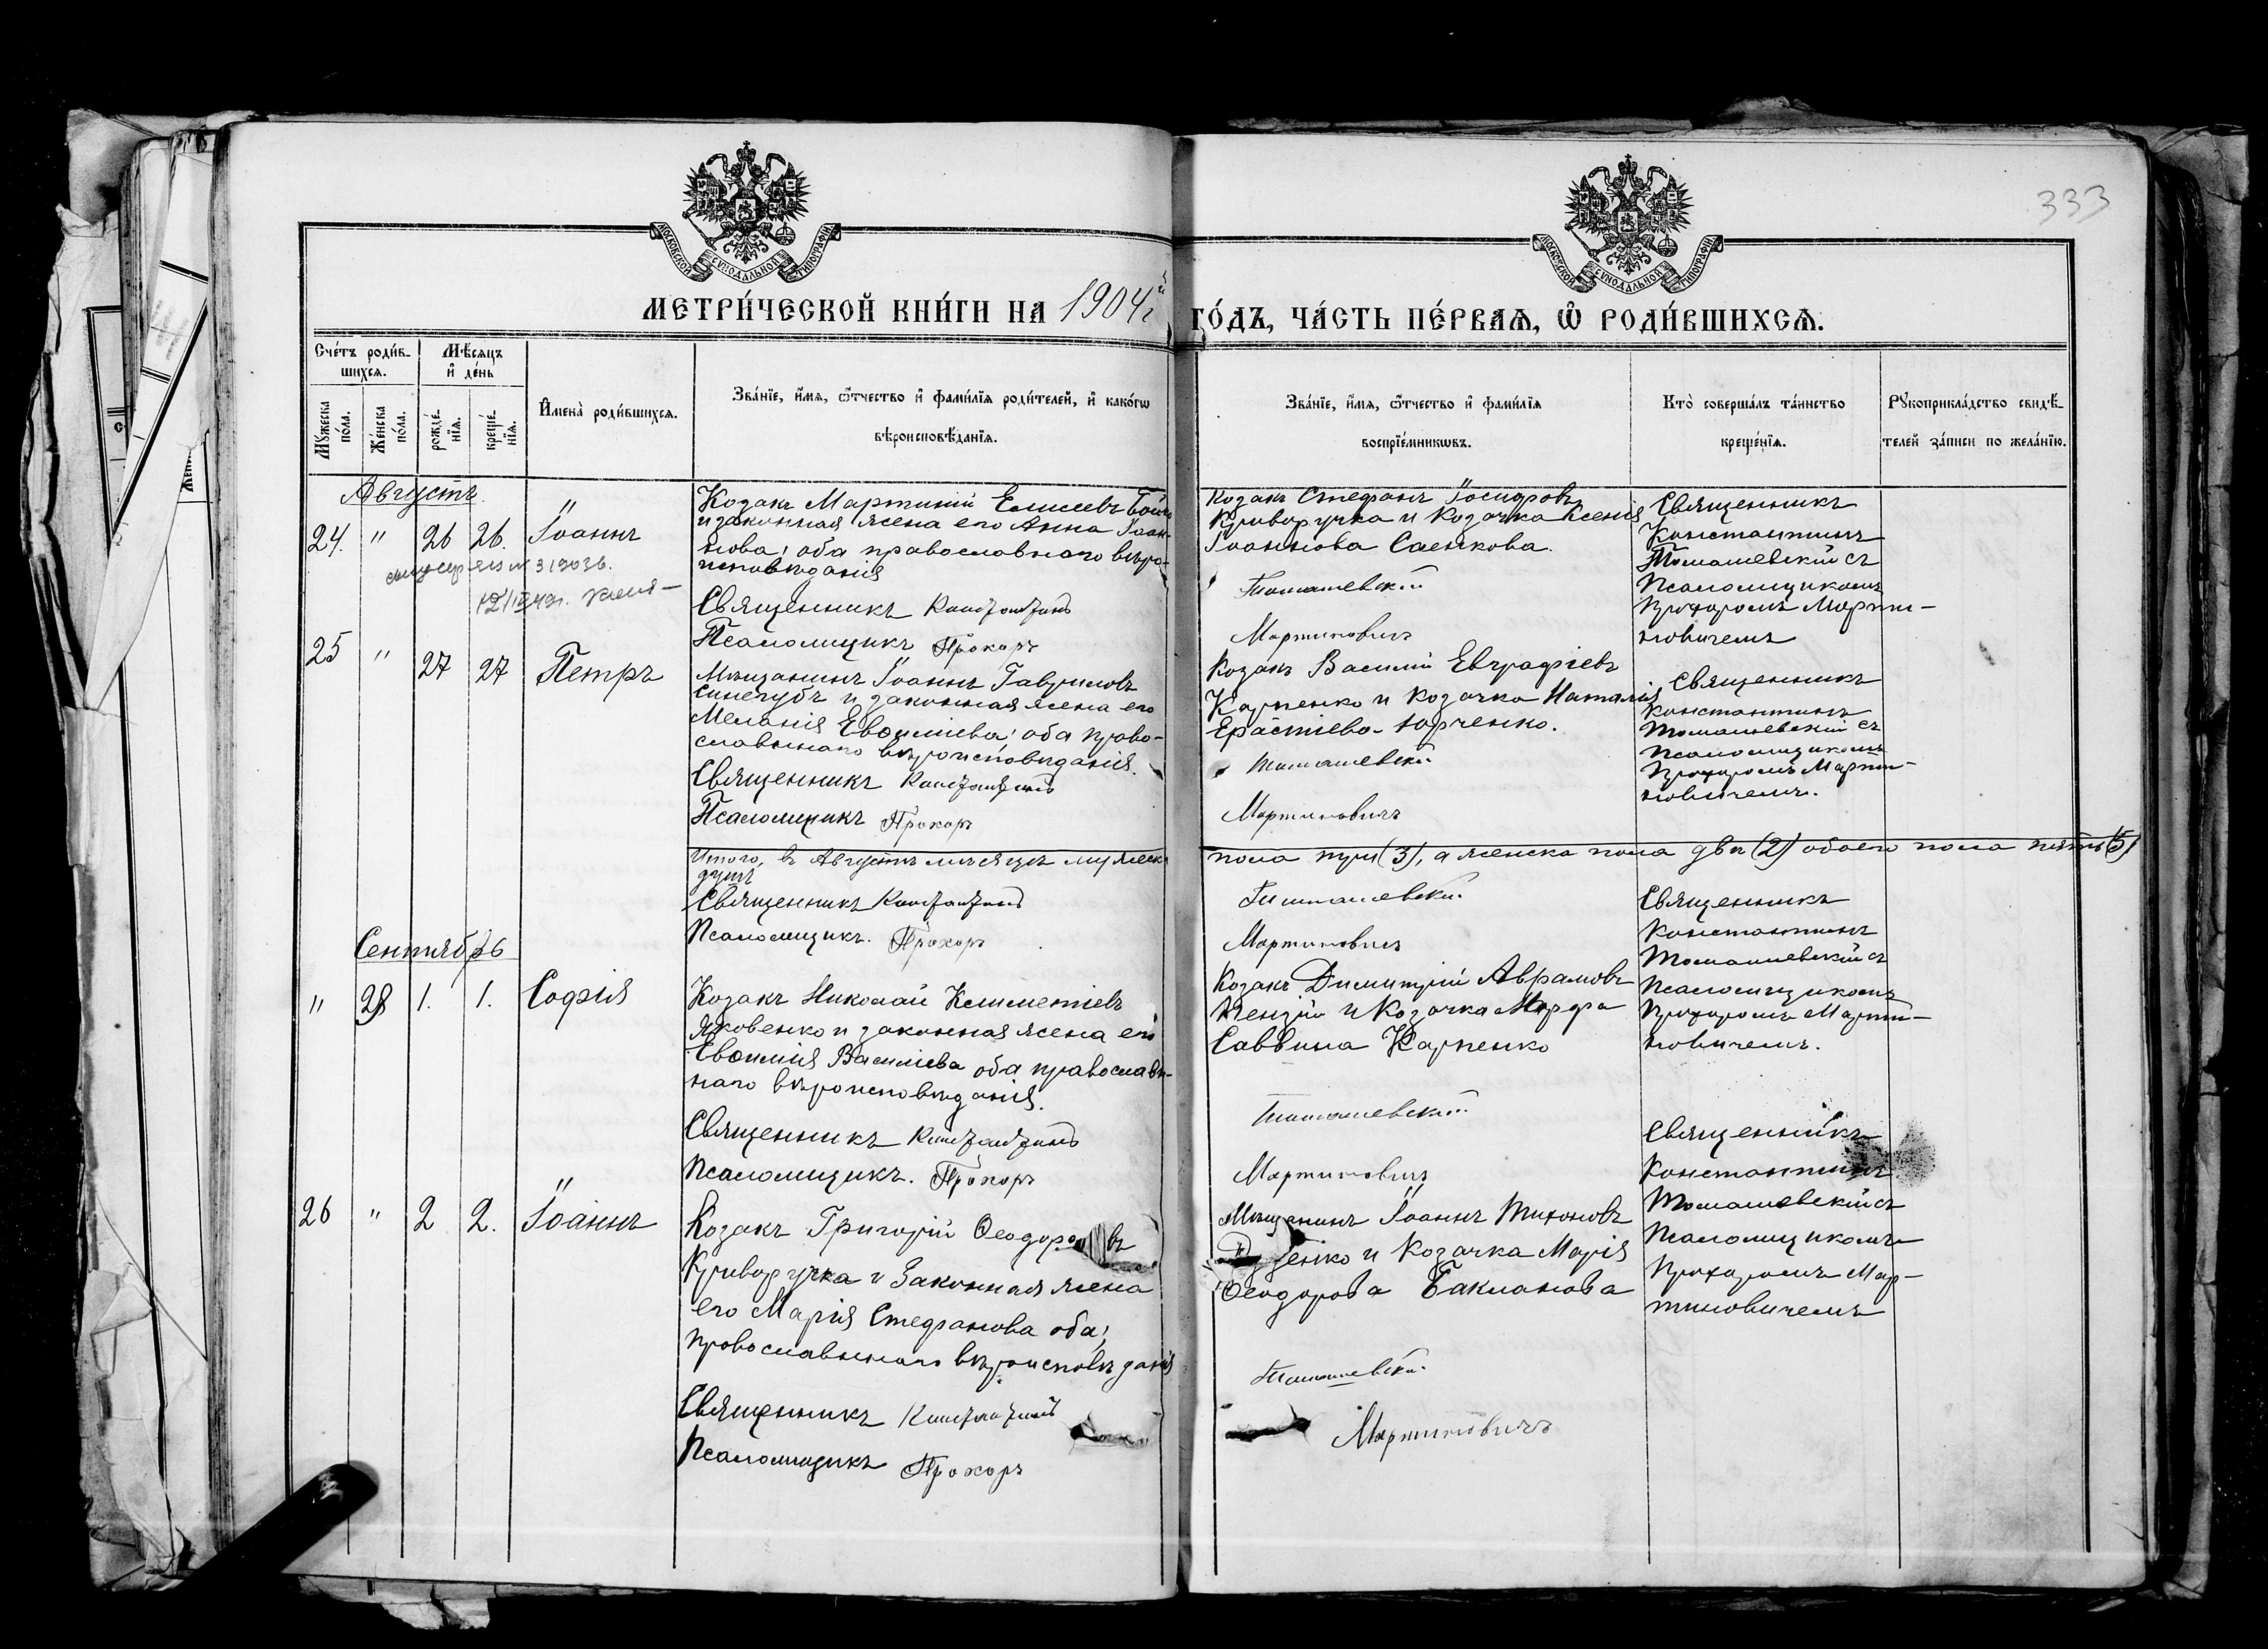 333
МОСКОВСКОЙ СѴНОДАЛЬНОЙ ТИПОГРАФІИ
МОСКОВСКОЙ СѴНОДАЛЬНОЙ ТИПОГРАФІИ
МЕТРИ́ЧЕСКОЙ КНИ́ГИ НА 1904й
ГО́ДЪ, ЧА́СТЬ ПЕ́РВАѦ, Ѽ РОДИ́ВШИХСѦ.
Сче́тъ роди́в-
шихсѧ.
Мѣ́сѧцъ
и҆ де́нь
Мꙋ́жеска
по́ла.
Же́нска
по́ла.
рожде́-
нїѧ.
креще́-
нїѧ.
И҆мена̀ роди́вшихсѧ.
Зва́нїе, и҆́мѧ, ѻ҆́тчество и҆ фами́лїѧ роди́телей, и҆ како́гѡ
вѣроисповѣ́данїѧ.
Зва́нїе, и҆́мѧ, ѻ҆́тчество и҆ фами́лїѧ
воспрїе́мникѡвъ.
Кто̀ соверша́лъ та́инство
креще́нїѧ.
Рꙋкоприкла́дство свидѣ́-
телей за́писи по жела́нїю.
Августъ
24. " 26 26. Іоаннъ
Козакъ Мартиній Елисеевъ
и законная жена его Анна Іоан-
нова; оба православнаго вѣро-
исповѣданія
Священникъ Константинъ
Псаломщикъ Прохоръ
Козакъ Стефанъ Іосифовъ
Криворучка и Козачка Ксенія
Іоаннова Саенкова.
Томашевскій
Мартиновичъ
Священникъ
Константинъ
Томашевскій съ
Псаломщикомъ
Прохоромъ Марти-
новичемъ
25 " 27 27 Петръ
Мѣщанинъ Іоаннъ Гавриловъ
Синегубъ и законная жена его
Меланія Евѳиміева; оба право-
славнаго вѣроисповѣданія.
Священникъ Константинъ
Псаломщикъ Прохоръ
Козакъ Василій Евграфіевъ
Карпенко и Козачка Наталія
Ерастіева Юрченко.
Томашевскій
Мартиновичъ
Священникъ
Константинъ
Томашевскій съ
Псаломщикомъ
Прохоромъ Марти-
новичемъ.
Итого, въ Августѣ мѣсяцѣ мужеск.
пола три (3), а женска пола двѣ (2) обоего пола пять (5)
душъ
Священникъ Константинъ
Псаломщикъ. Прохоръ
Томашевскій
Мартиновичъ
Сентябрь
" 28 1. 1. Софія
Козакъ Николай Климентіевъ
Яковенко и законная жена его
Евѳимія Василіева оба православ-
наго вѣроисповѣданія.
Священникъ Константинъ
Псаломщикъ. Прохоръ
Козакъ Димитрій Аврамовъ
и Козачка Марфа
Саввина Карпенко
Томашевскій
Мартиновичъ
Священникъ
Константинъ
Томашевскій съ
Псаломщикомъ
Прохоромъ Марти-
новичемъ.
26 " 2 2. Іоаннъ
Козакъ Григорій Ѳеодоровъ
Криворучка и Законная жена
его Марія Стефанова оба;
православнаго вѣроисповѣданія
Священникъ Константинъ
Псаломщикъ Прохоръ
Мѣщанинъ Іоаннъ Тихоновъ
и Козачка Марія
Ѳеодорова Бакланова
Томашевскій
Мартиновичъ
Священникъ
Константинъ
Томашевскій съ
Псаломщикомъ
Прохоромъ Мар-
тиновичемъ